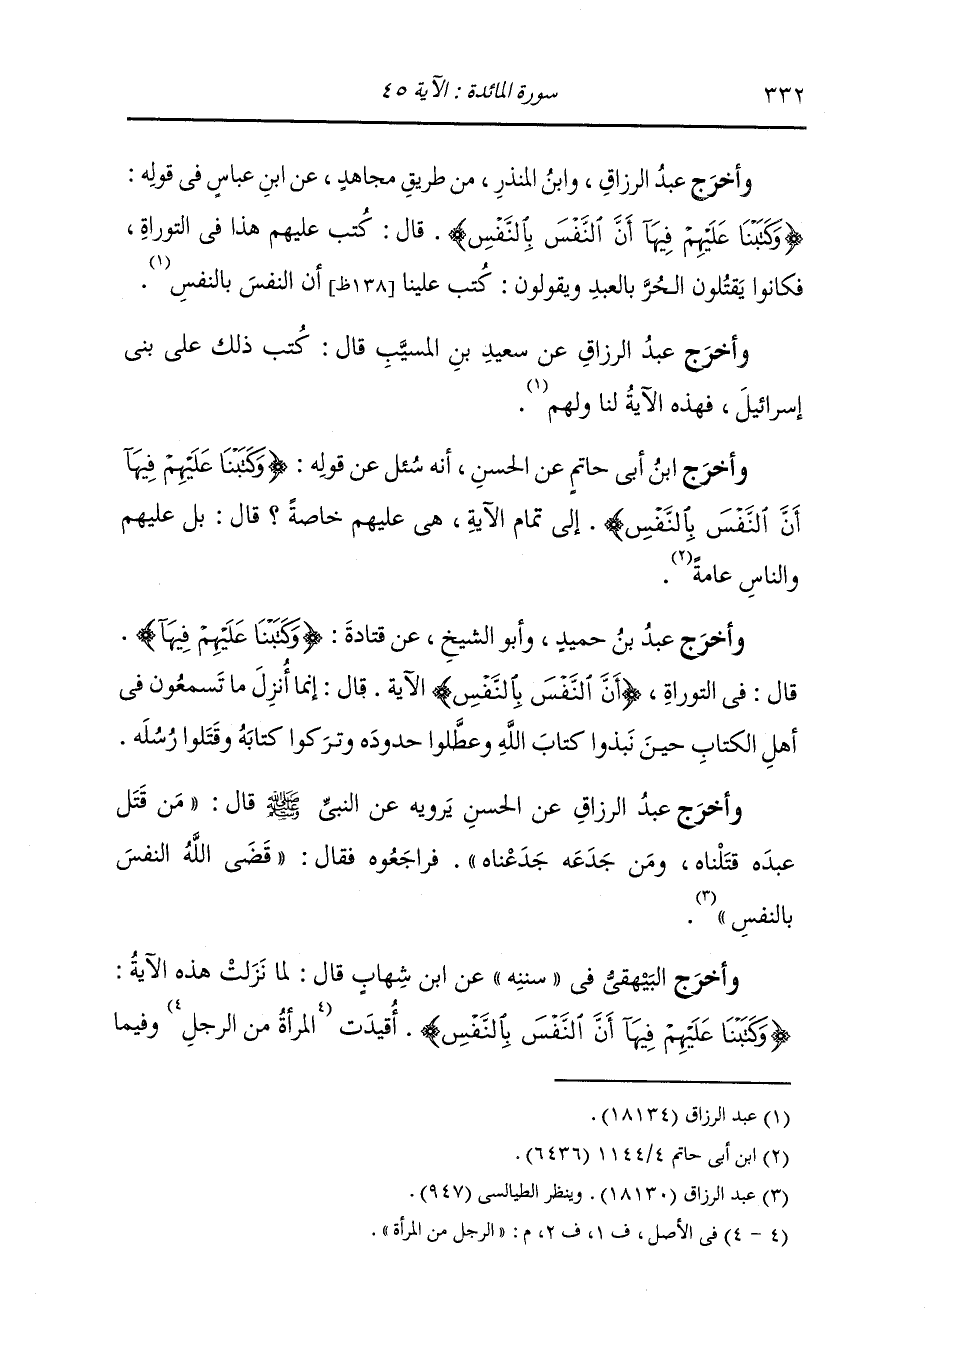 ٣٣٢ سورة المائدة : الآية ٤٥
وأخرَج عبدُ الرزاقِ ، وابنُ المنذرِ ، من طريقِ مجاهدٍ ، عن ابنِ عباسٍ فى قولِه :
﴿وَكَتَبْنَا عَلَيْهِمْ فِيهَآ أَنَّ ٱلنَّفْسَ بِٱلنَّفْسِ﴾ . قال : كُتب عليهم هذا فى التوراةِ ،
فكانوا يَقتُلون الحُرَّ بالعبدِ ويقولون : كُتب علينا [١٣٨ظ] أن النفسَ بالنفسِ(١) .
وأخرَج عبدُ الرزاقِ عن سعيدِ بنِ المسيَّبِ قال : كُتب ذلك على بنى
إسرائيلَ ، فهذه الآيةُ لنا ولهم(١) .
وأخرَج ابنُ أبى حاتمٍ عن الحسنِ ، أنه سُئل عن قولِه : ﴿وَكَتَبْنَا عَلَيْهِمْ فِيهَآ
أَنَّ ٱلنَّفْسَ بِٱلنَّفْسِ﴾ . إلى تمام الآيةِ ، هى عليهم خاصةً ؟ قال : بل عليهم
والناسِ عامةً(٢) .
وأخرَج عبدُ بنُ حميدٍ ، وأبو الشيخِ ، عن قتادةَ : ﴿وَكَتَبْنَا عَلَيْهِمْ فِيهَآ﴾ .
قال : فى التوراةِ ، ﴿أَنَّ ٱلنَّفْسَ بِٱلنَّفْسِ﴾ الآية . قال : إنما أُنزِلَ ما تَسمعُون فى
أهلِ الكتابِ حينَ نَبذوا كتابَ اللَّهِ وعطَّلوا حدودَه وتركوا كتابَهُ وقَتَلوا رُسُلَه .
وأخرَج عبدُ الرزاقِ عن الحسنِ يَرويه عن النبىِّ ﷺ قال : « مَن قَتَل
عبدَه قتَلْناه ، ومَن جَدَعَه جَدَعْناه » . فراجَعُوه فقال : « قَضَى اللَّهُ النفسَ
بالنفسِ »(٣) .
وأخرَج البَيْهقىُّ فى « سننِه » عن ابن شِهابٍ قال : لما نَزَلتْ هذه الآيةُ :
﴿وَكَتَبْنَا عَلَيْهِمْ فِيهَآ أَنَّ ٱلنَّفْسَ بِٱلنَّفْسِ﴾ . أُقيدَت (٤المرأةُ من الرجلِ٤) وفيما
(١) عبد الرزاق (١٨١٣٤) .
(٢) ابن أبى حاتم ١١٤٤/٤ (٦٤٣٦) .
(٣) عبد الرزاق (١٨١٣٠) . وينظر الطيالسى (٩٤٧) .
(٤ - ٤) فى الأصل ، ف ١، ف ٢، م : « الرجل من المرأة » .